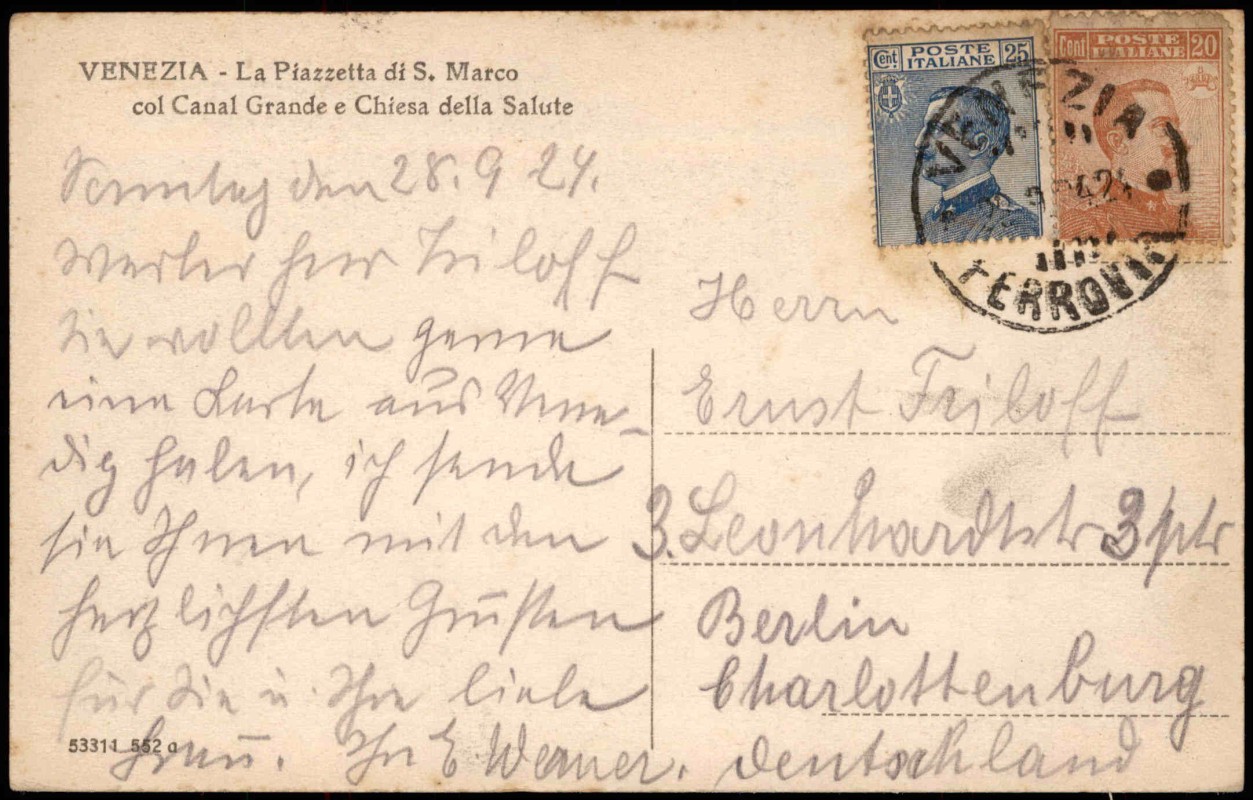 VENEZIA - La Piazzetta di S. Marco
col Canal Grande e Chiesa della Salute
Sonntag den 28. 9 24.
Werter Herr Friloff
Sie wollten gerne
eine Karte aus Vene-
dig haben, ich sende
sie Ihnen mit den
herzlichsten Grüßen
für Sie u. Ihre liebe
Frau. Ihr E Werner.
53311 552 a
Cent. POSTE ITALIANE 25
Cent POSTE ITALIANE 20
VENEZIA
FERROVIA
Herrn
Ernst Friloff
3. Leonhardtstr 3 ptr
Berlin
Charlottenburg
Deutschland